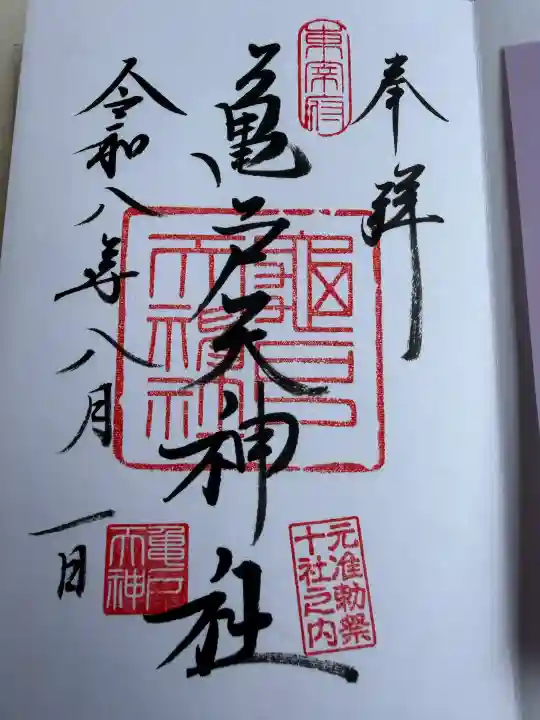 奉拝
東宰府
亀戸天神社
令和八年八月一日
元准勅祭
十社之内
亀戸
天神